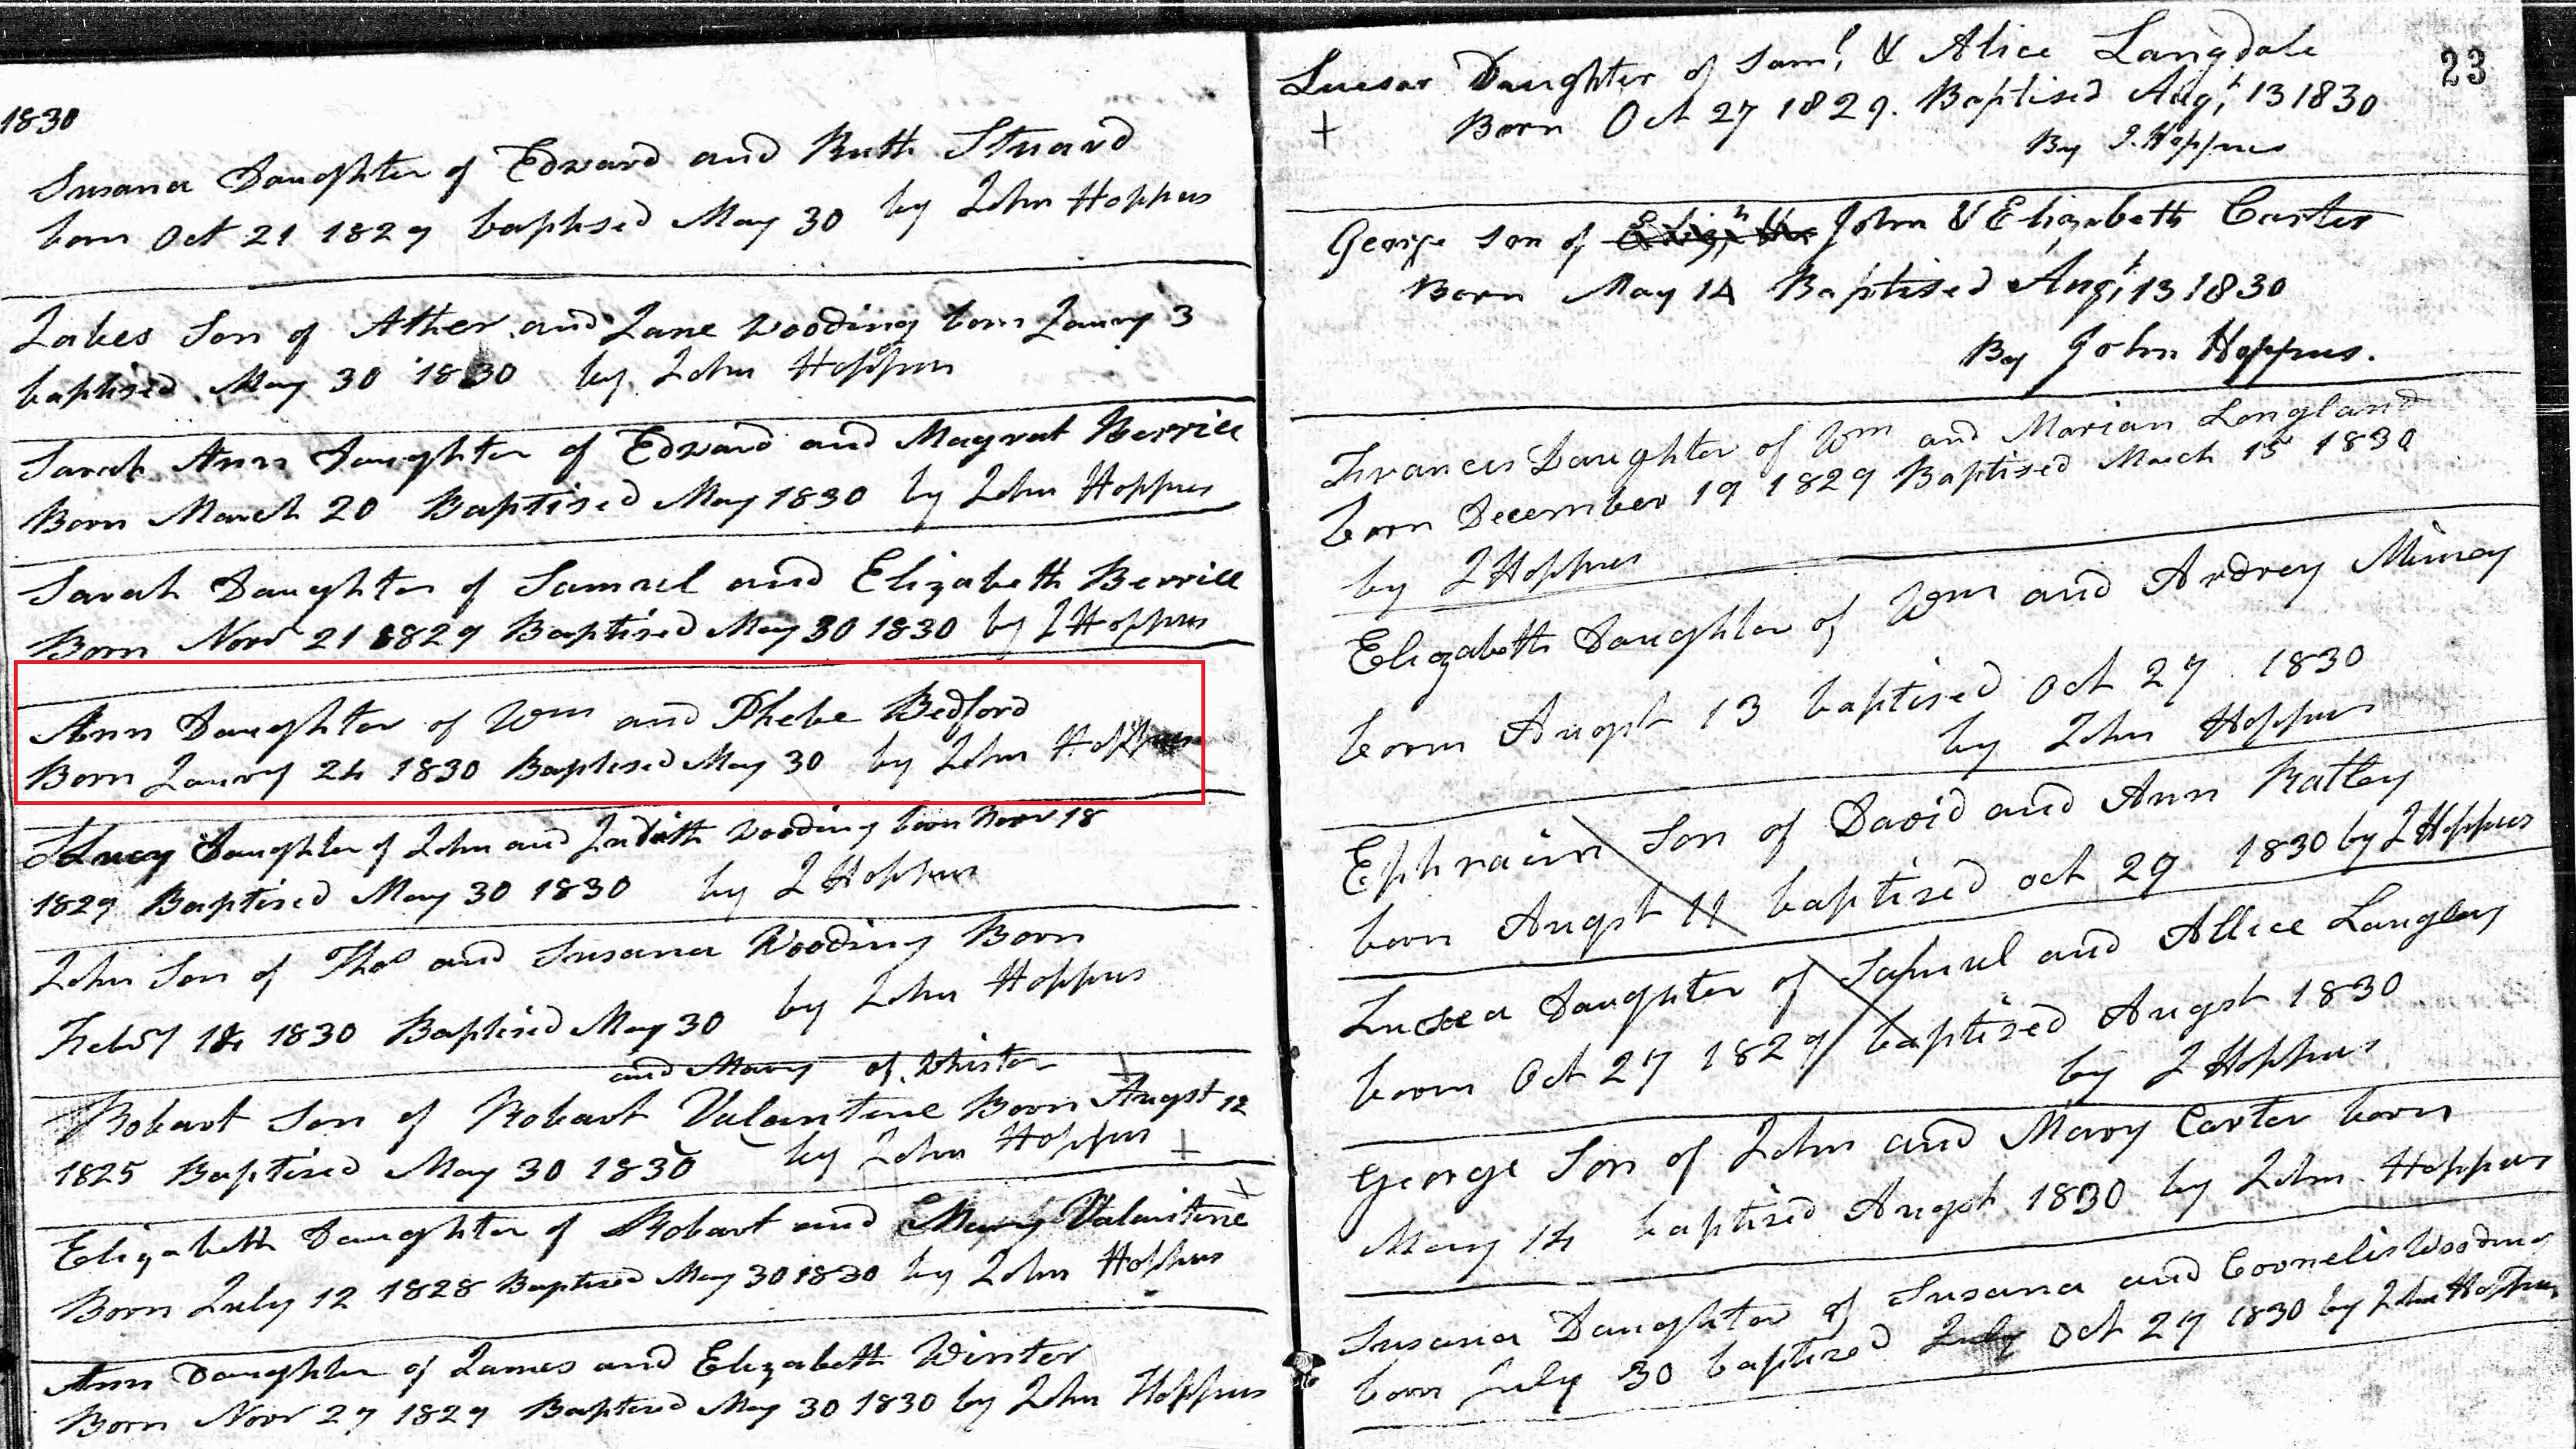 1830
Susana Daughter of Edward and Ruth Stuard
born Oct 21 1829 baptised May 30 by John Hoppus
Jabes Son of Ather and Jane Wooding born Janry 3
baptised May 30 1830 by John Hoppus
Sarah Ann Daughter of Edward and Magrat Berrill
Born March 20 Baptised May 1830 by John Hoppus
Sarah Daughter of Samuel and Elizabeth Berrill
Born Novr 21 1829 Baptised May 30 1830 by J Hoppus
Ann Daughter of Wm and Phebe Bedford
Born Janry 24 1830 Baptised May 30 by John Hoppus
Lucy Daughter of John and Judath Wooding born Novr 18
1829 Baptised May 30 1830 by J Hoppus
John Son of Thos and Susana Wooding Born
Febry 14 1830 Baptised May 30 by John Hoppus
and Mary of Whiston
Robart Son of Robart Valantine Born Augst 12
1825 Baptised May 30 1830 by John Hoppus
Elizabeth Daughter of Robart and Mary Valantine
Born July 12 1828 Baptised May 30 1830 by John Hoppus
Ann Daughter of James and Elizabeth Winter
Born Novr 27 1829 Baptised May 30 1830 by John Hoppus
23
Luesar Daughter of Saml. & Alice Langdale
Born Oct 27 1829. Baptised Augt 13 1830
By J. Hoppus
George son of John & Elizabeth Carter
Born May 14 Baptised Augt 13 1830
By John Hoppus.
Frances Daughter of Wm and Marian Longland
born December 19 1829 Baptised March 15 1830
by J Hoppus
Elizabeth Daughter of Wm and Ardrey Minney
born Augst 13 baptised Oct 27 1830
by John Hoppus
Ephraim Son of David and Ann Ratley
born Augst 11 baptised oct 29 1830 by J Hoppus
Daughter of Samuel and Allice Langley
born Oct 27 1829 baptised Augst 1830
by J Hoppus
George Son of John and Mary Carter born
May 14 baptised Augst 1830 by John Hoppus
Susana Daughter of Susana and Cornelis Wooding
born July 30 baptised July Oct 27 1830 by John Hoppus